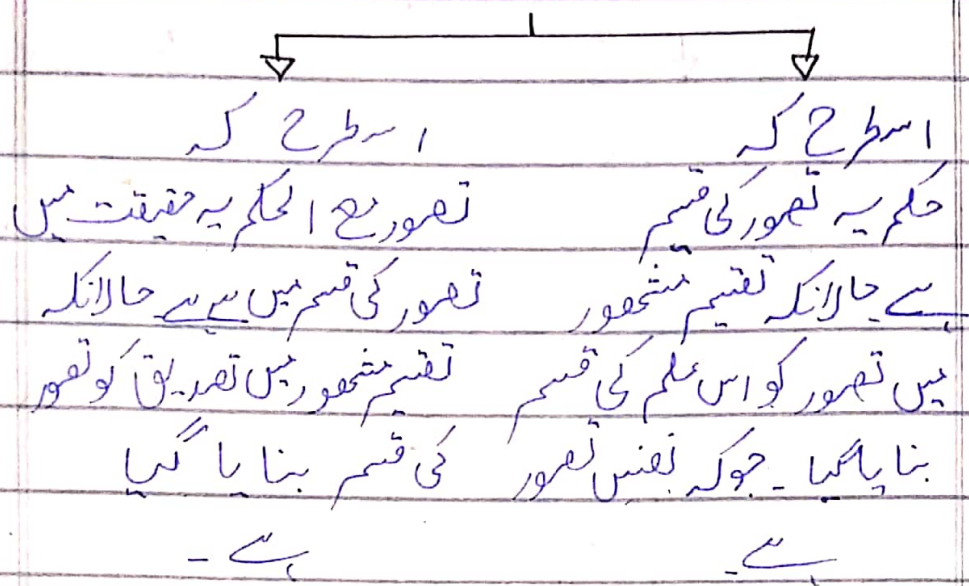 اسطرح کہ
حکم یہ تصور کی قسیم
ہے حالانکہ تقسیم مشہور
میں تصور کو اس علم کی قسم
بنایا گیا ۔ جوکہ نفس تصور
ہے ۔
اسطرح کہ
تصور مع الحکم یہ حقیقت میں
تصور کی قسم میں سے ہے حالانکہ
تقسیم مشہور میں تصدیق کو تصور
کی قسم بنایا گیا
ہے ۔